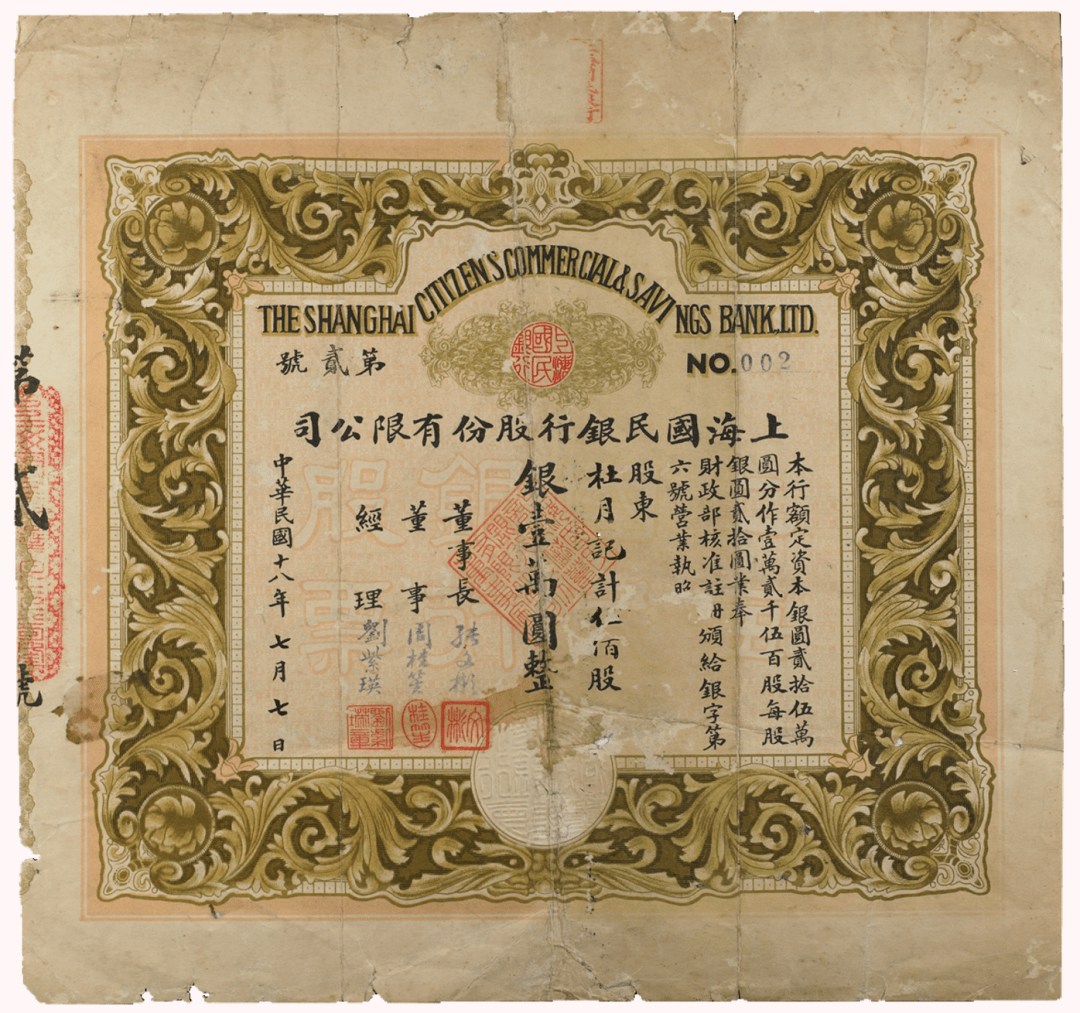 THE SHANGHAI CITIZEN'S COMMERCIAL & SAVINGS BANK, LTD.
上海國民銀行
第貳號
NO.002
上海國民銀行股份有限公司
本行額定資本銀圓貳拾伍萬
圓分作壹萬貳千伍百股每股
銀圓貳拾圓業奉
財政部核准註冊頒給銀字第
六號營業執照
股東
杜月記計伍佰股
銀壹萬圓整
董事長 張文彬
文彬
董事 周桂笙
桂笙
經理 劉紫瑛
中華民國十八年七月七日
第貳號